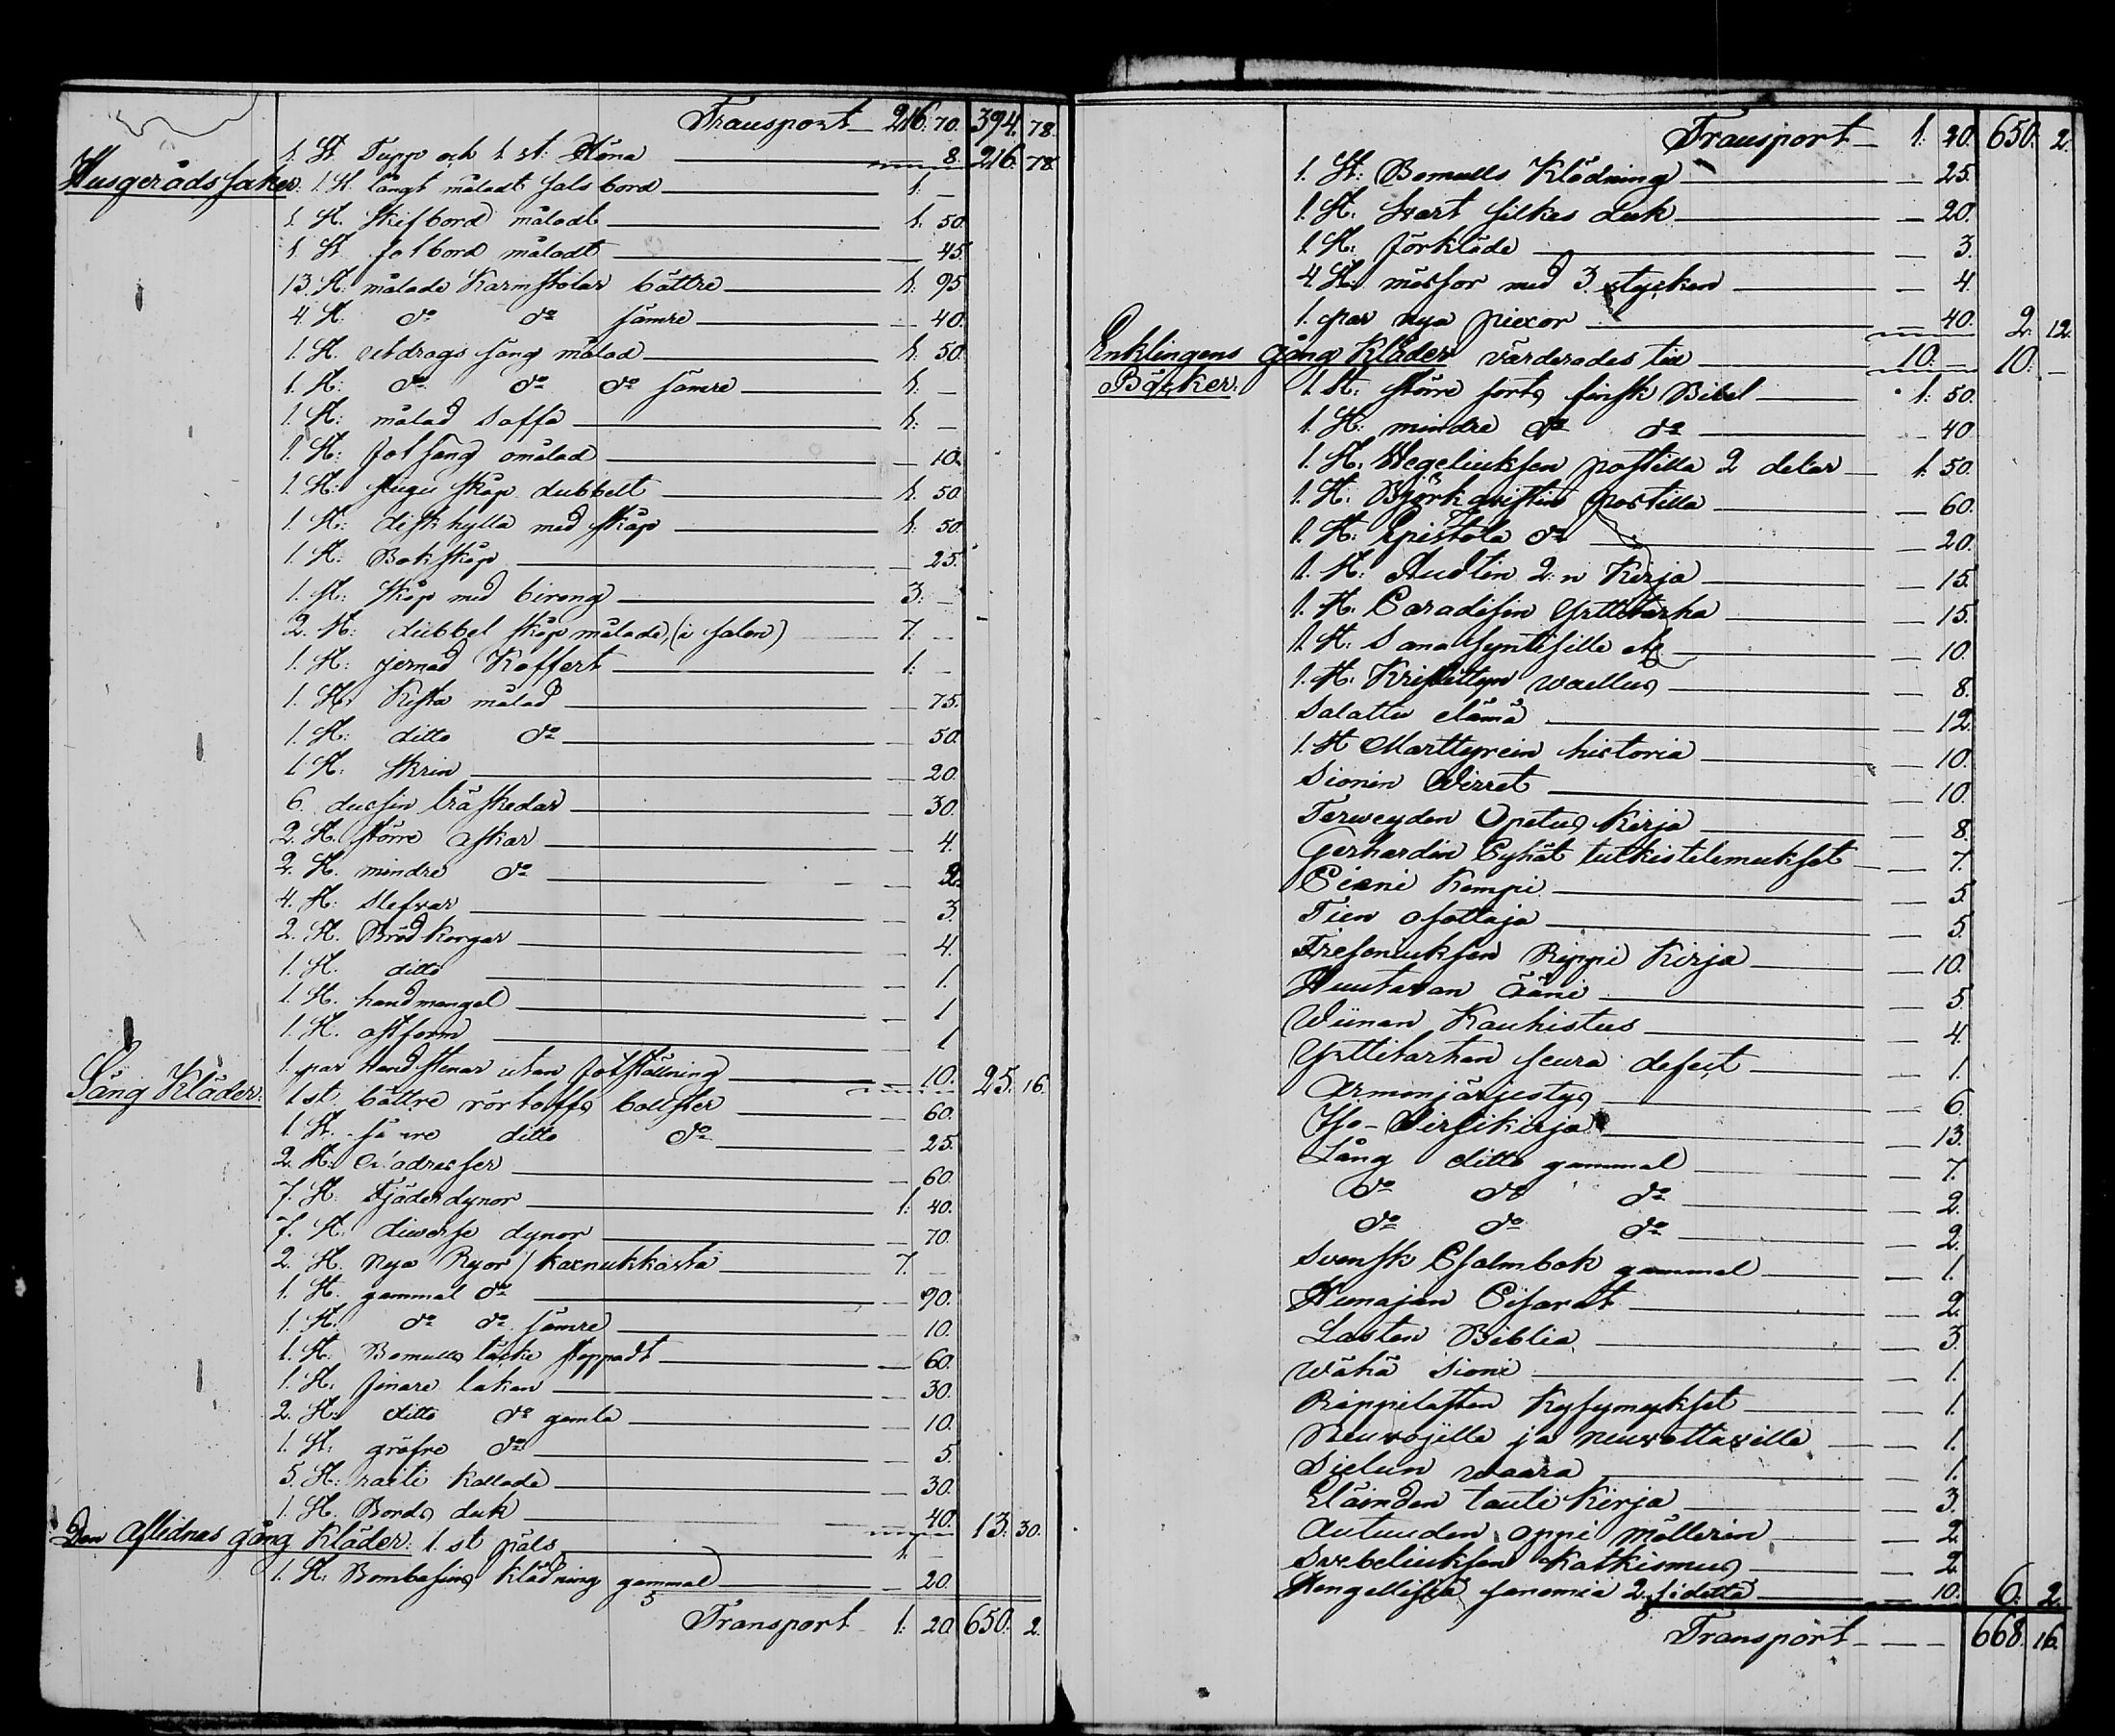 Transport 216. 70. 394. 78.
1. St. Tupp och 1. st. Höna — 8. 216. 78.
Husgerådssaker: 1. St. långt måladt sals bord — 1. —
1. St. skifbord måladt — 1. 50.
1. St. fotbord måladt — 45.
13. St. målade Karmstolar bättre — 1. 95
4. St. do do sämre — 40.
1. St. utdrags säng målad — 1. 50.
1. St. do do do sämre — 1. —
1. St. målad Soffa — 1. —
1. St. fotsäng omålad — 10.
1. St. skåp dubbelt — 1. 50
1. St. diskhylla med skåp — 1. 50.
1. St. Bokskåp — 25.
1. St. skåp med birong — 3. —
2. St. dubbel skåp målade, (i salen) — 7. —
1. St. jernad Koffert — 1. —
1. St. Kista målad — 75.
1. St. ditto do — 50.
1. St. skrin — 20.
6. dussin träskedar — 30.
2. St. större askar — 4.
2. St. mindre do — 2.
4. St. slefvar — 3.
2. St. Brödkorgar — 4.
1. St. ditto — 1.
1. St. handmangel — 1
1. St. ostform — 1
1. par handstenar utan fotställning — 10. 25. 16.
Säng Kläder: 1 st. bättre bolster — 60.
1. St. sämre ditto do — 25.
2. St. Madrasser — 60.
7. St. Fjäderdynor — 1. 40.
7. St. diverse dynor — 70.
2. St. nya Ryor / karnukkasta — 7. —
1. St. gammal do — 90.
1. St. do do sämre — 10.
1. St. Bomulls täcke stoppadt — 60.
1. St. finare lakan — 30.
2. St. ditto do gamla — 10.
1. St. gröfre do — 5.
5. St. raiti — 30.
1. St. Bords duk — 40. 13. 30.
Den Aflidnas gång Kläder: 1. st päls — 1. —
1. St. Bombasins klädning gammal — 20.
Transport 1. 20 650. 2.
Transport — 1. 20. 650. 2.
1. St. Bomulls Klädning — 25.
1. St. svart silkes duk — 20.
1. St. förkläde — 3.
4 St. mössor med 3. stycken — 4.
1. par nya piexor — 40. 2. 12.
Enklingens gång Kläder värderades till — 10. — 10. —
Böcker. 1. St. större sorts finsk Bibel — 1. 50.
1. St. mindre do do — 40
1. St. Wegeliuksen postilla 2 delar — 1. 50.
1. St. Björkqvistin postilla — 60.
1. St. Epistola do — 20.
1. St. 2:n Kirja — 15.
1. St. Paradisin Yrttitarha — 15.
1. St. Sana syntisille etc — 10.
1. St. Kristityn waellus — 8.
Salattu elämä — 12.
1. St Marttyrein historia — 10.
Sionin Wirret — 10.
Terweyden Opetus Kirja — 8.
Gerhardin Pyhät tutkistelemukset — 7.
Pieni Kempi — 5.
Tien osottaja — 5.
Freseniuksen Rippi Kirja — 10.
Huutavan Ääni — 5
Wiinan Kauhistus — 4.
Yrttitarhan seura defect — 1.
Armonjärjestys — 6.
Iso-Virsikirja — 13.
Lång ditto gammal — 7.
do do do — 2.
do do do — 2.
Svensk Psalmbok gammal — 1.
Hunajan Pisarat — 2.
Lasten Biblia — 3.
Wähä Sioni — 1.
Rippilasten Kysymykset — 1.
Neuvojille ja neuvottaville — 1.
Sielun waara — 1.
Eläinden tauti Kirja — 3.
Autuuden oppi Möllerin — 2.
Svebeliuksen Katkismus — 2.
Hengellisiä sanomia 2. sidetta — 10. 6. 2.
Transport — 668. 16.